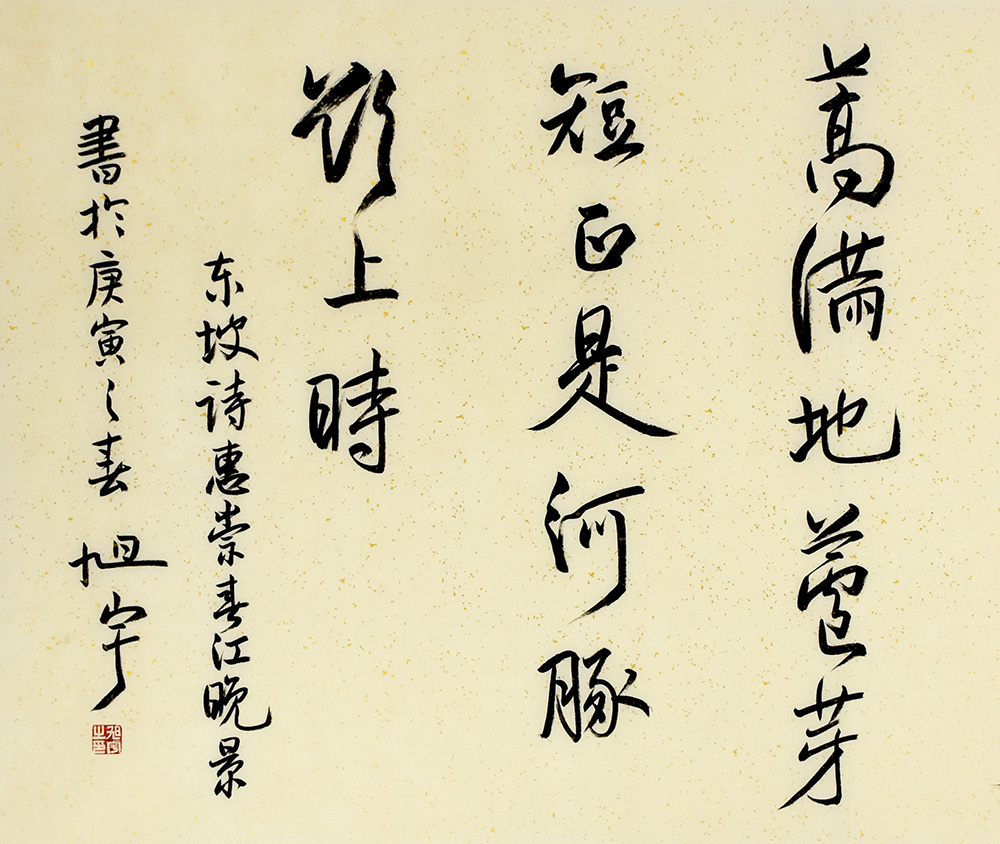 蒿满地蘆芽
短正是河豚
欲上時
东坡诗惠崇春江晚景
書於庚寅之春 旭宇
旭宇之印